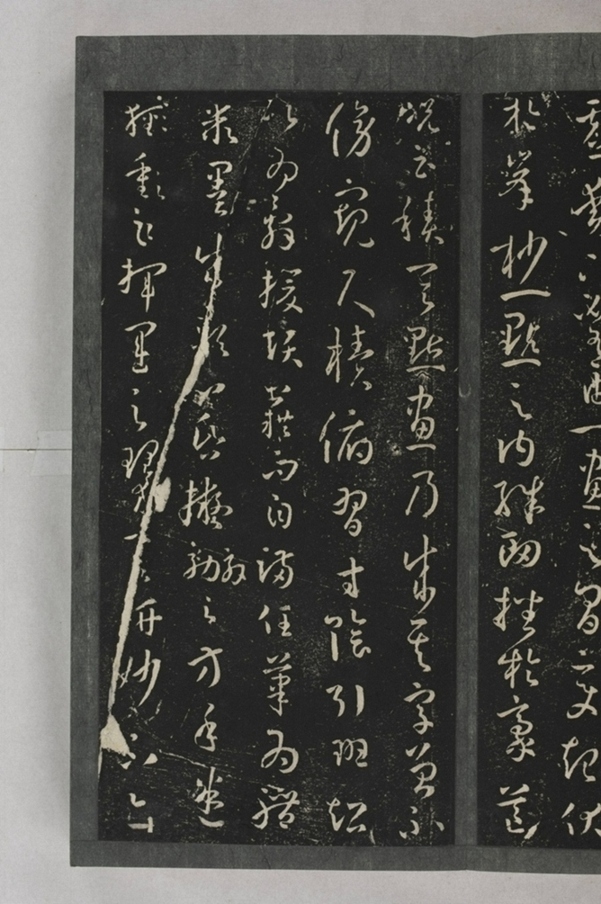 虛動下必有由一畫之間變起伏
於峯杪一點之內殊衄挫於豪芒
況云積其點畫乃成其字曾不
傍窺尺牘俯習寸陰引班超
以為辭援項籍而自滿任筆為體
聚墨成形心昏擬效之方手迷
揮運之理求其妍妙不亦